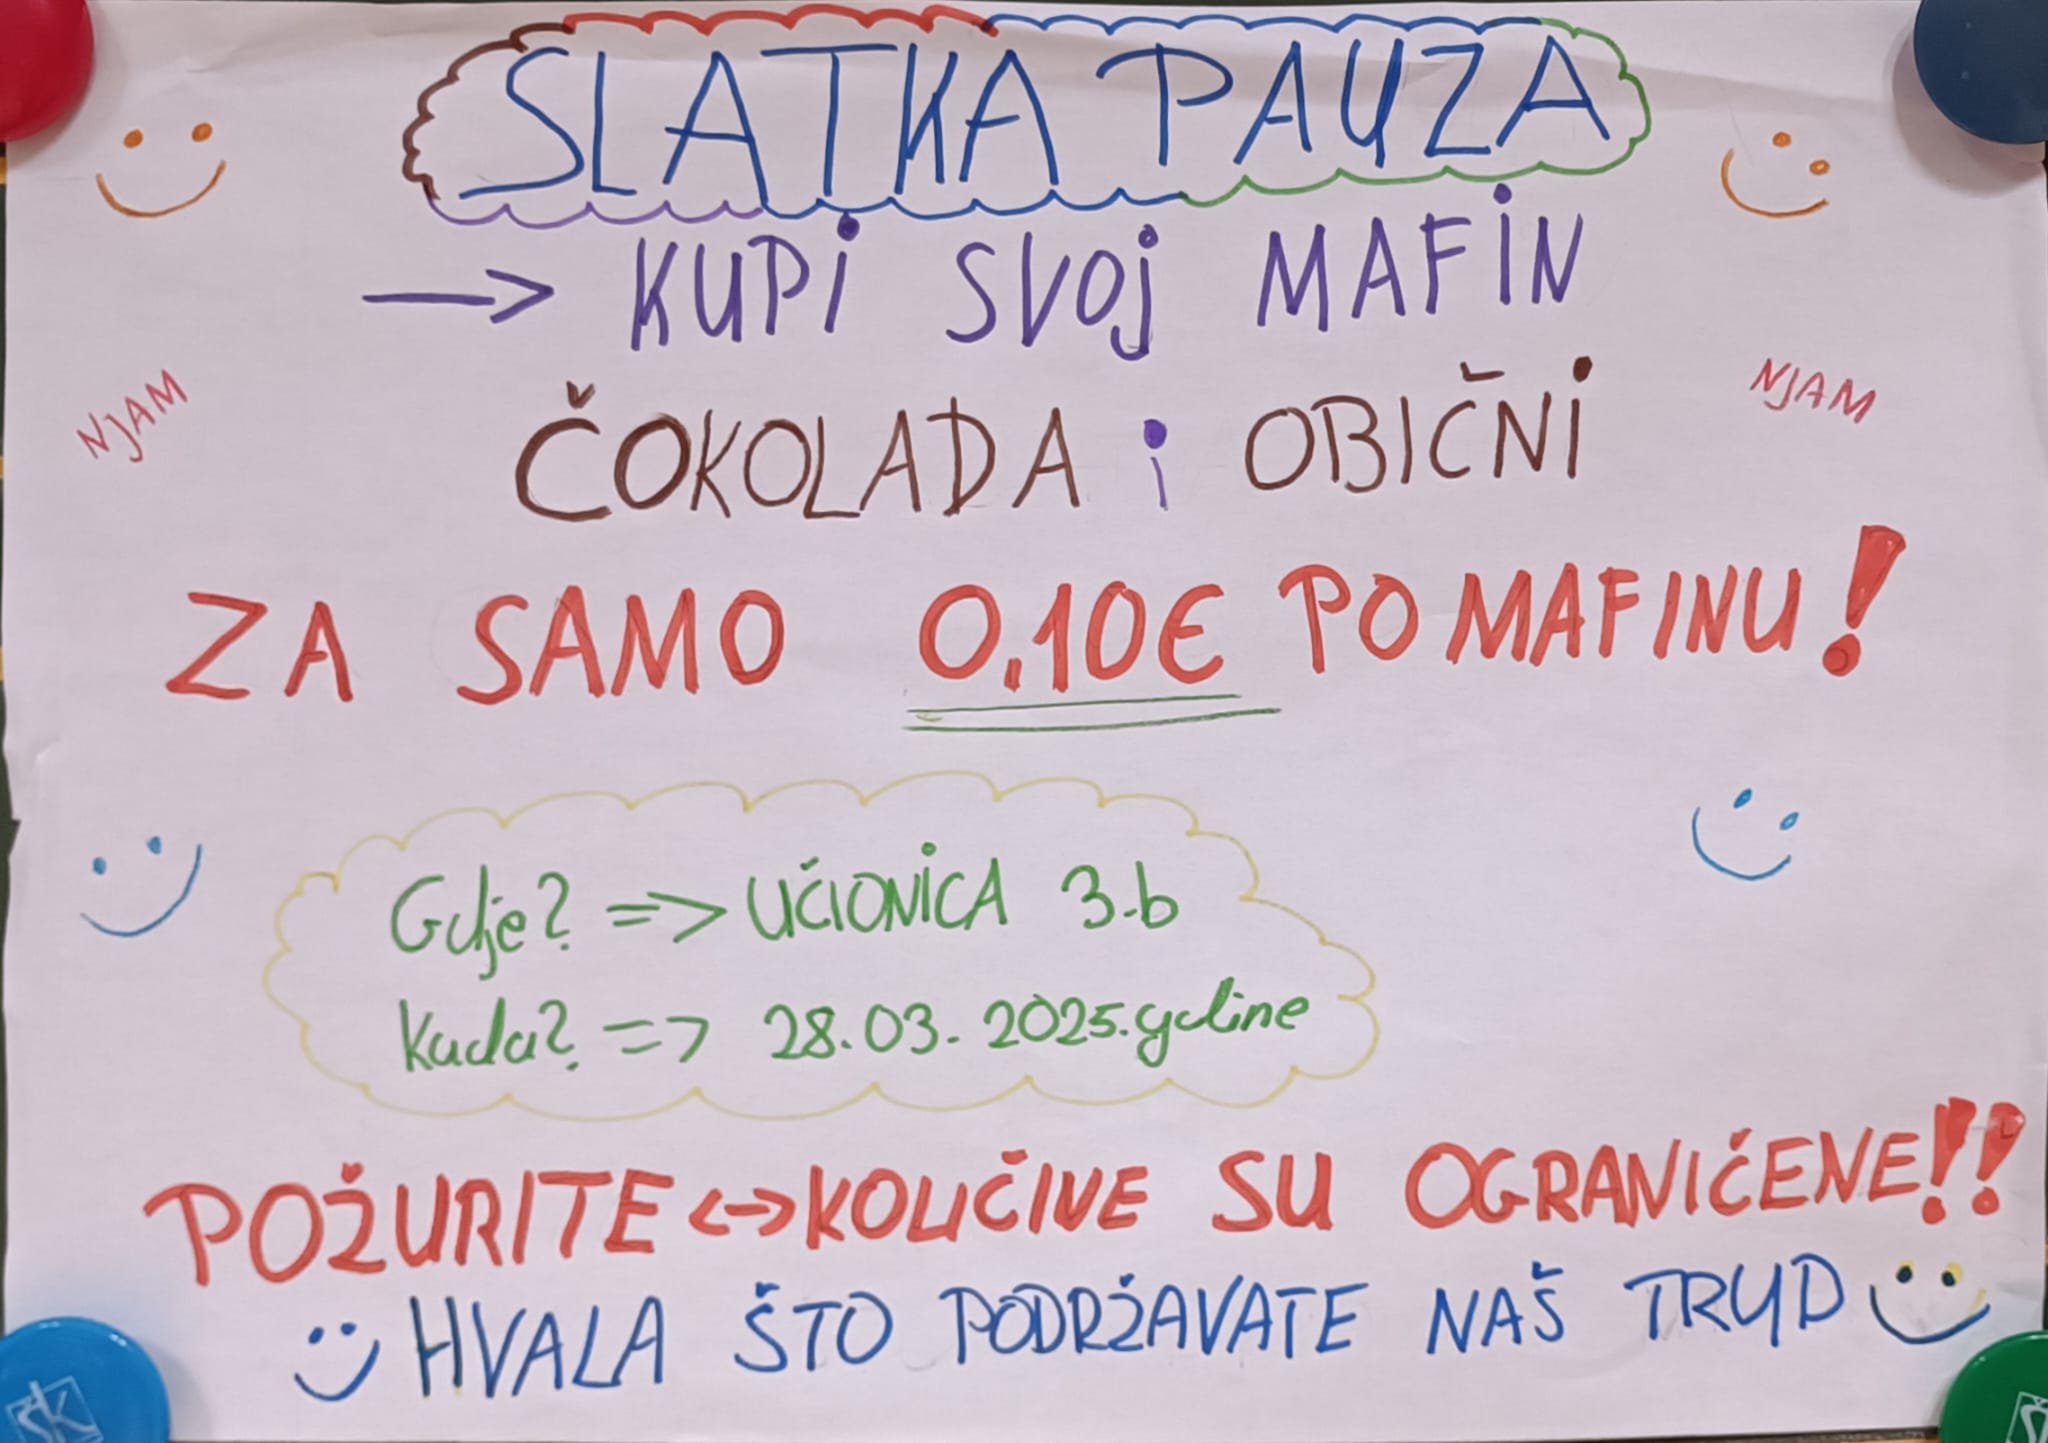 SLATKA PAUZA
→ KUPI SVOJ MAFIN
NJAM
ČOKOLADA i OBIČNI
NJAM
ZA SAMO 0,10€ PO MAFINU!
Gdje? => UČIONICA 3.b
Kada? => 28.03. 2025. godine
POŽURITE <-> KOLIČINE SU OGRANIČENE!!
HVALA ŠTO PODRŽAVATE NAŠ TRUD
ŠK